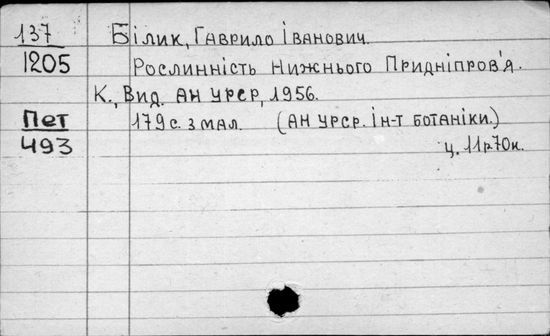 137 Білик, Гаврило Іванович.
1205 Рослинність Нижнього Придніпров'я.
К., Вид. АН УРСР, 1956.
Пет 179 с. з мал. (АН УРСР. Ін-т ботаніки.)
493 ц. 11р70к.